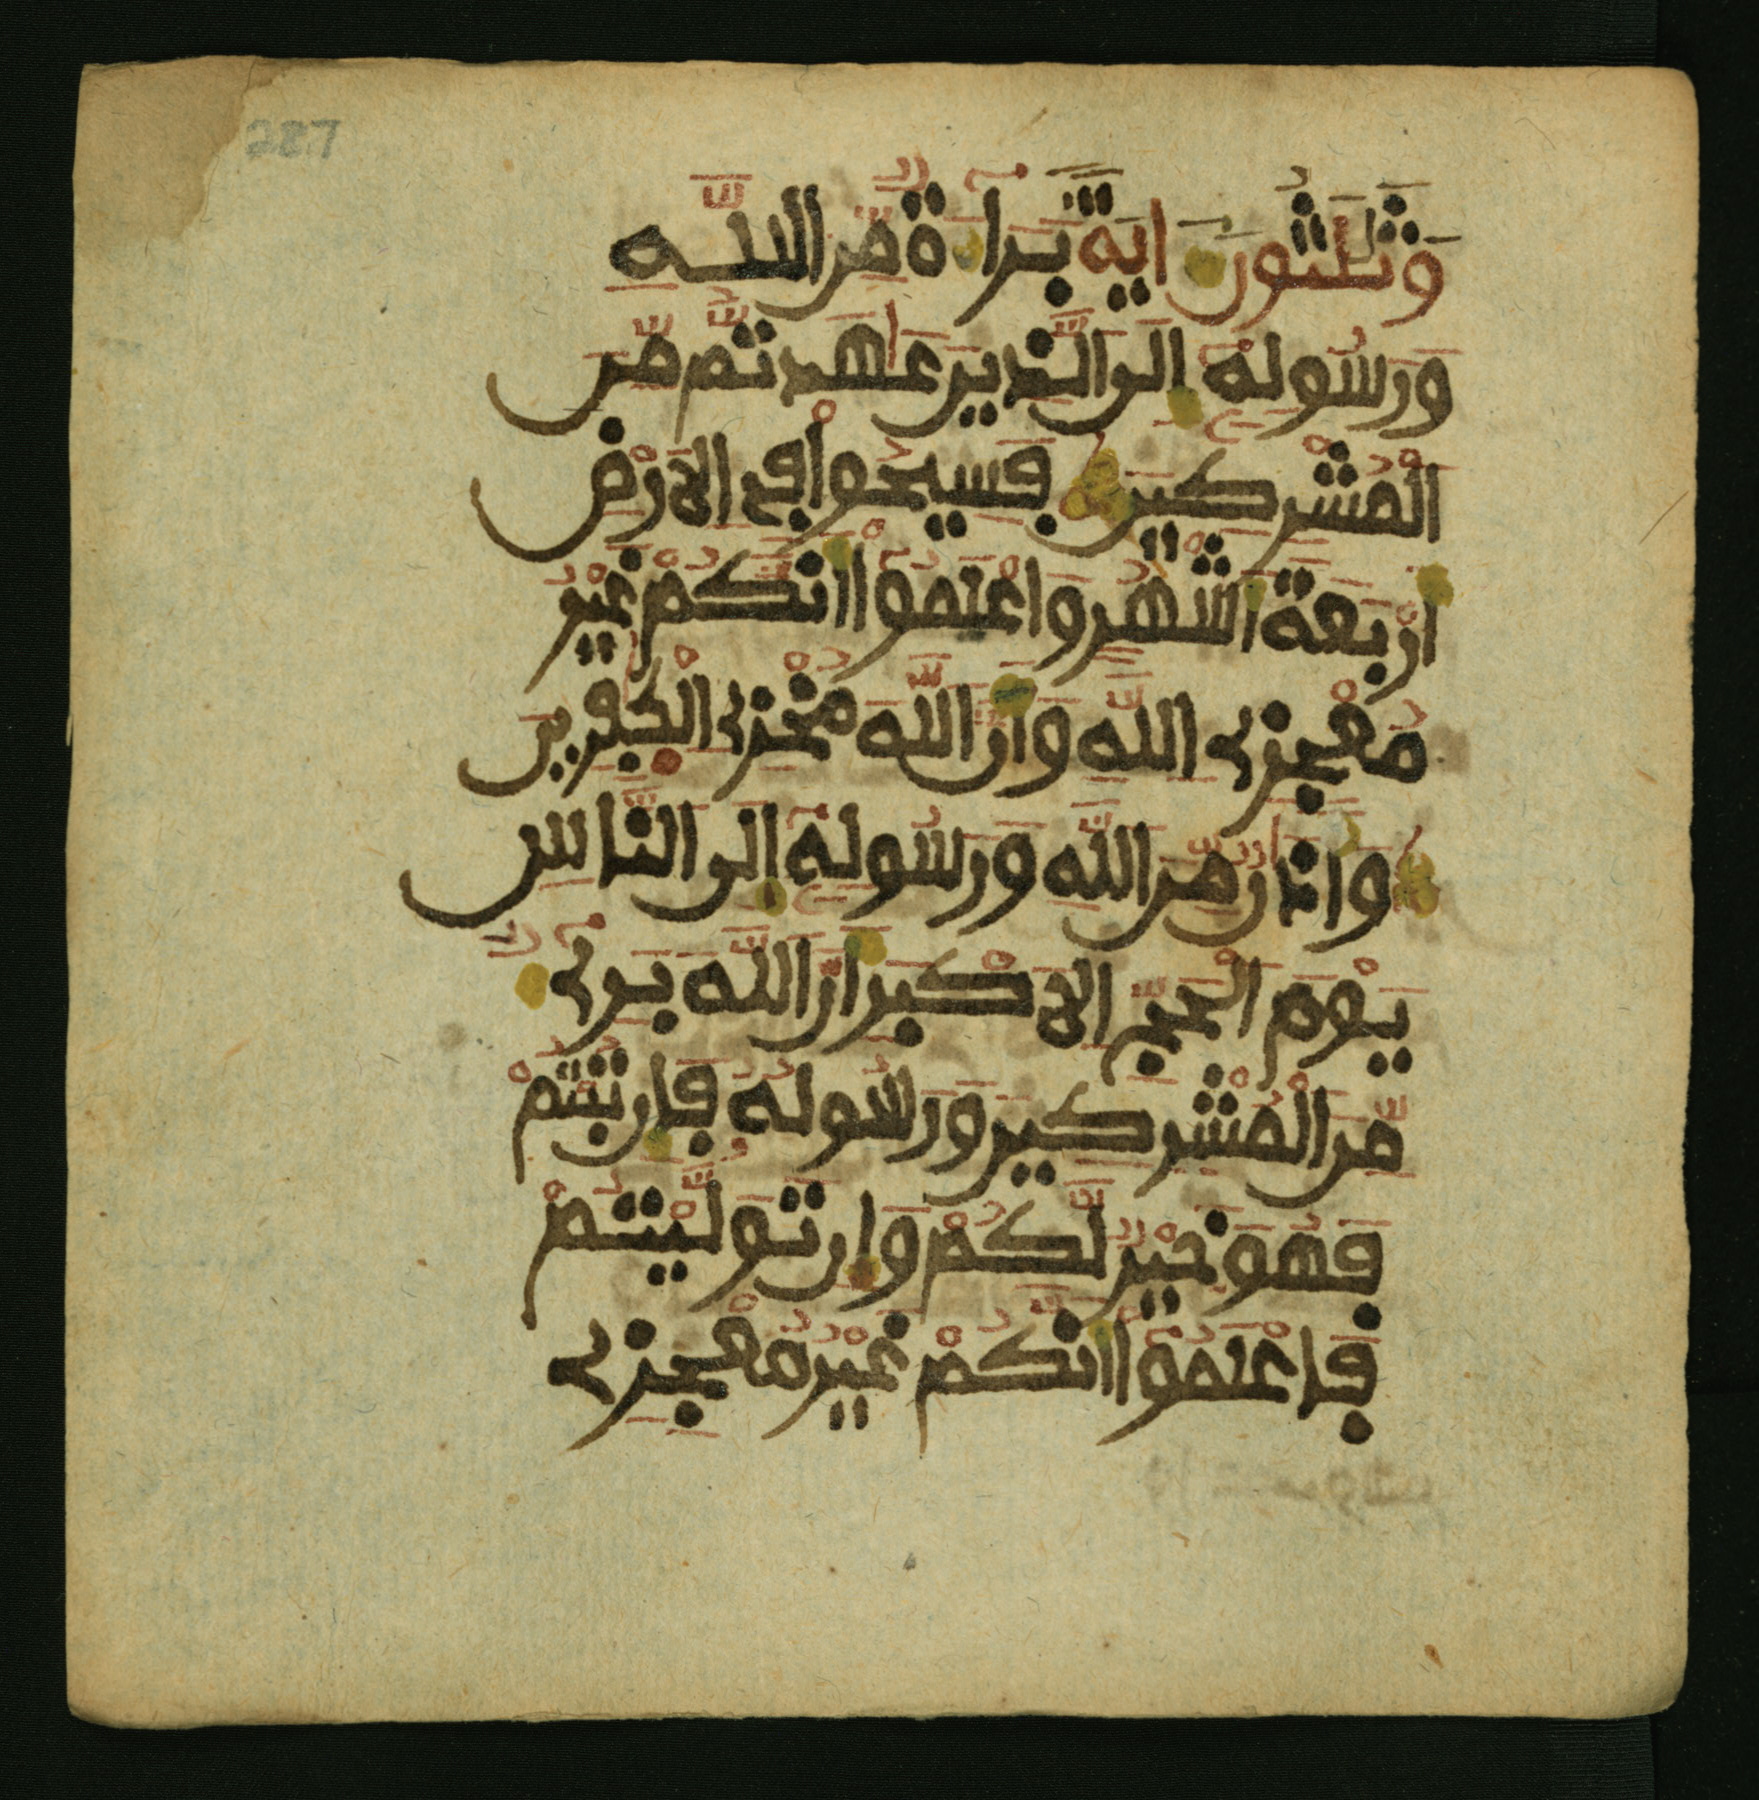 وَثَلَثُونَ ايَةً بَرَاءَةٌ مِّنَ اللَّهِ
وَرَسُولِهِ إِلَى الَّذِينَ عَاهَدتُّم مِّنَ
الْمُشْرِكِينَ فَسِيحُوا فِي الْأَرْضِ
أَرْبَعَةَ أَشْهُرٍ وَاعْلَمُوا أَنَّكُمْ غَيْرُ
مُعْجِزِي اللَّهِ وَأَنَّ اللَّهَ مُخْزِي الْكَافِرِينَ
وَأَذَانٌ مِّنَ اللَّهِ وَرَسُولِهِ إِلَى النَّاسِ
يَوْمَ الْحَجِّ الْأَكْبَرِ أَنَّ اللَّهَ بَرِيءٌ
مِّنَ الْمُشْرِكِينَ وَرَسُولُهُ فَإِن تُبْتُمْ
فَهُوَ خَيْرٌ لَّكُمْ وَإِن تَوَلَّيْتُمْ
فَاعْلَمُوا أَنَّكُمْ غَيْرُ مُعْجِزِي